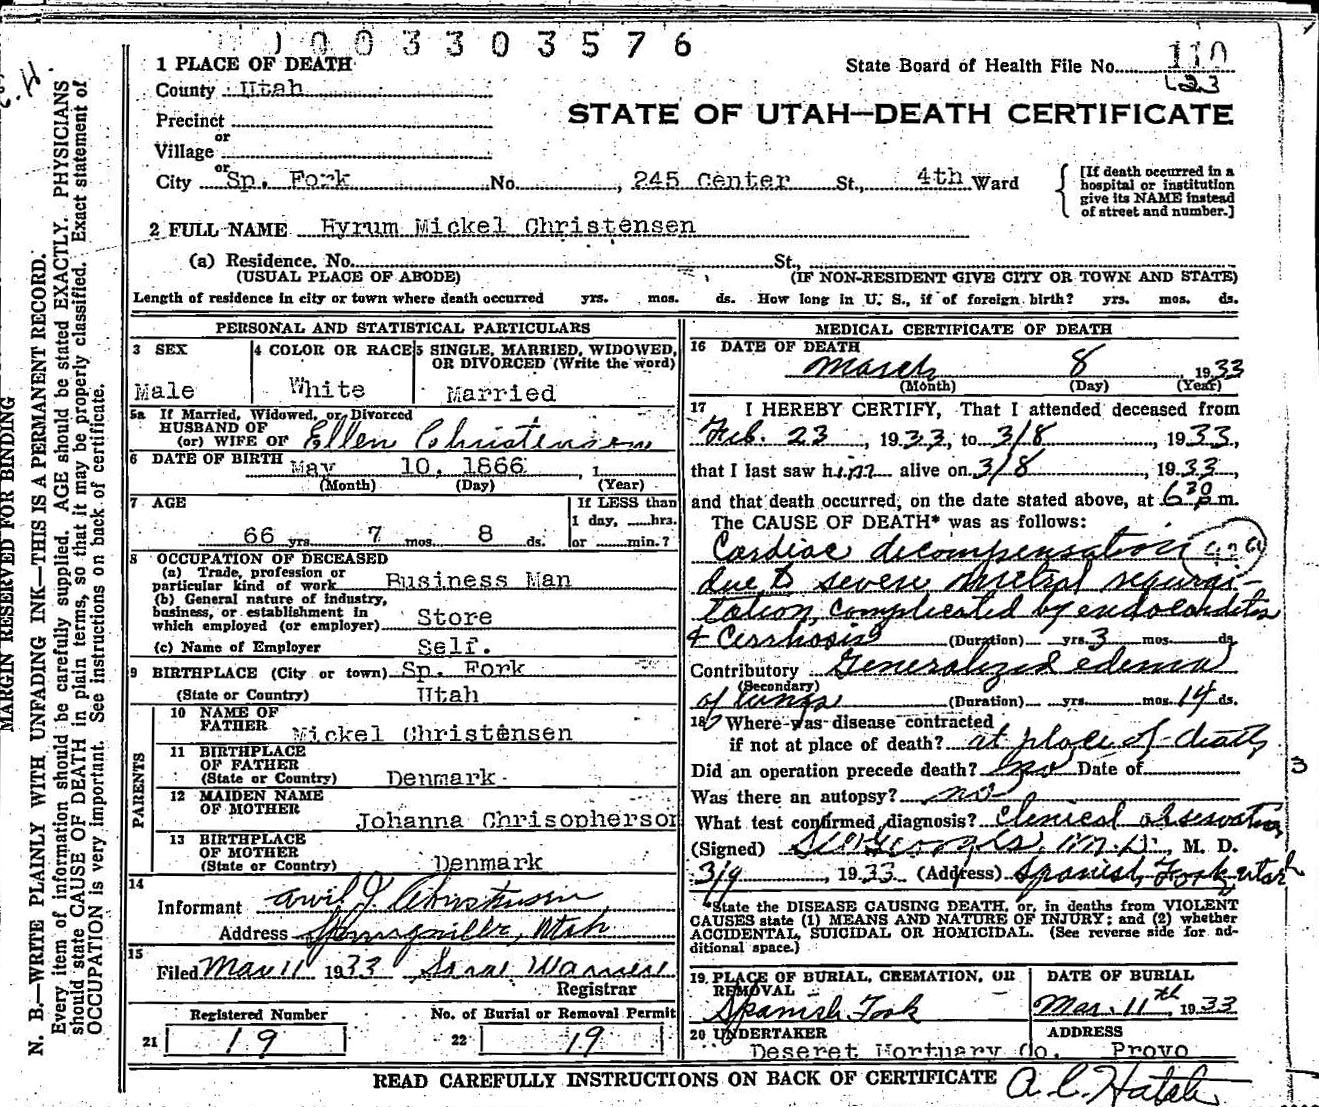 1003303576
1 PLACE OF DEATH
State Board of Health File No. 110
123
County Utah
STATE OF UTAH—DEATH CERTIFICATE
Precinct
or
Village
or
City Sp. Fork No. , 245 Center St., 4th Ward
[If death occurred in a
hospital or institution
give its NAME instead
of street and number.]
2 FULL NAME Hyrum Mickel Christensen
(a) Residence. No. St.,
(USUAL PLACE OF ABODE) (IF NON-RESIDENT GIVE CITY OR TOWN AND STATE)
Length of residence in city or town where death occurred yrs. mos. ds. How long in U. S., if of foreign birth? yrs. mos. ds.
PERSONAL AND STATISTICAL PARTICULARS
3 SEX
Male
4 COLOR OR RACE
White
5 SINGLE, MARRIED, WIDOWED,
OR DIVORCED (Write the word)
Married
5a If Married, Widowed, or Divorced
HUSBAND OF
(or) WIFE OF Ellen Christensen
6 DATE OF BIRTH May 10, 1866 , 1
(Month) (Day) (Year)
7 AGE
66 yrs. 7 mos. 8 ds.
If LESS than
1 day, hrs.
or min.?
8 OCCUPATION OF DECEASED
(a) Trade, profession or
particular kind of work Business Man
(b) General nature of industry,
business, or establishment in
which employed (or employer) Store
(c) Name of Employer Self.
9 BIRTHPLACE (City or town) Sp. Fork
(State or Country) Utah
PARENTS
10 NAME OF
FATHER Mickel Christensen
11 BIRTHPLACE
OF FATHER
(State or Country) Denmark
12 MAIDEN NAME
OF MOTHER Johanna Chrisopherson
13 BIRTHPLACE
OF MOTHER
(State or Country) Denmark
14
Informant Arvil J Christensen
Address Springville, Utah
15
Filed Mar 11 1933 Warner
Registrar
Registered Number
21 19
No. of Burial or Removal Permit
22 19
MEDICAL CERTIFICATE OF DEATH
16 DATE OF DEATH
March 8 , 1933
(Month) (Day) (Year)
17 I HEREBY CERTIFY, That I attended deceased from
Feb. 23 , 1933, to 3/8 , 1933,
that I last saw him alive on 3/8 , 1933,
and that death occurred, on the date stated above, at 6 30 p m.
The CAUSE OF DEATH* was as follows:
Cardiac decompensation
due to severe mitral regurgi-
tation, complicated by endocarditis
& Cirrhosis (Duration) yrs. 3 mos. ds.
Contributory Generalized edema
(Secondary)
of lungs (Duration) yrs. mos. 14 ds.
18 Where was disease contracted
if not at place of death? at place of death
Did an operation precede death? no Date of
Was there an autopsy? no
What test confirmed diagnosis? Clinical observation
(Signed) Georges M.D., M. D.
3/9 , 1933 (Address) Spanish Fork, Utah
*State the DISEASE CAUSING DEATH, or, in deaths from VIOLENT
CAUSES state (1) MEANS AND NATURE OF INJURY; and (2) whether
ACCIDENTAL, SUICIDAL OR HOMICIDAL. (See reverse side for ad-
ditional space.)
3
19 PLACE OF BURIAL, CREMATION, OR
REMOVAL
Spanish Fork
DATE OF BURIAL
Mar. 11th, 1933
20 UNDERTAKER ADDRESS
Deseret Mortuary Co. Provo
READ CAREFULLY INSTRUCTIONS ON BACK OF CERTIFICATE A. C. Hatch
MARGIN RESERVED FOR BINDING
N. B.—WRITE PLAINLY WITH UNFADING INK—THIS IS A PERMANENT RECORD.
Every item of information should be carefully supplied. AGE should be stated EXACTLY. PHYSICIANS
should state CAUSE OF DEATH in plain terms, so that it may be properly classified. Exact statement of
OCCUPATION is very important. See instructions on back of certificate.